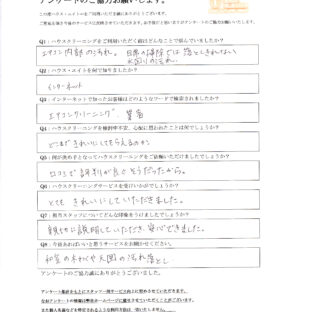 アンケートのご協力お願いします。
Q1：ハウスクリーニングをご利用いただく前はどんなことで悩んでいましたか？
エアコン内部の汚れ。日常の掃除では落としきれない
水回りの汚れ。
Q2：ハウス・エイトを何で知りましたか？
インターネット
Q3：インターネットで知ったお客様はどのようなワードで検索されましたか？
エアコンクリーニング
Q4：ハウスクリーニングを検討中不安、心配に思われたことは何でしょうか？
どこまできれいにしてもらえるのか
Q5：何が決め手となってハウスクリーニングをご依頼いただけましたでしょうか？
口コミで評判が良さそうだったから。
Q6：ハウスクリーニングサービスを受けいかがでしょうか？
とてもきれいにしていただきました。
Q7：担当スタッフについてどんな印象をうけましたでしょうか？
親切に説明していただき、安心できました。
Q8：今後あればいいと思うサービスをお聞かせください。
和室の木わくや天図の汚れ落とし
アンケートのご協力誠にありがとうございました。